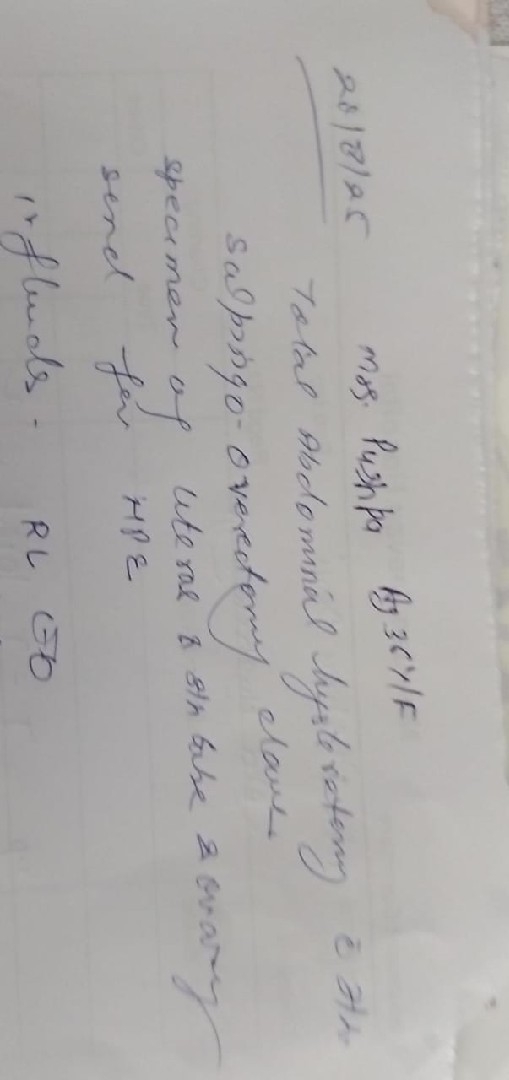 28/8/25
Mrs. Pushpa Ag 36Y/F
Total Abdominal hysterectomy c̄
Salpingo-overectomy done
specimen of uterus & tube & ovary
send for HPE
IV fluids. RL